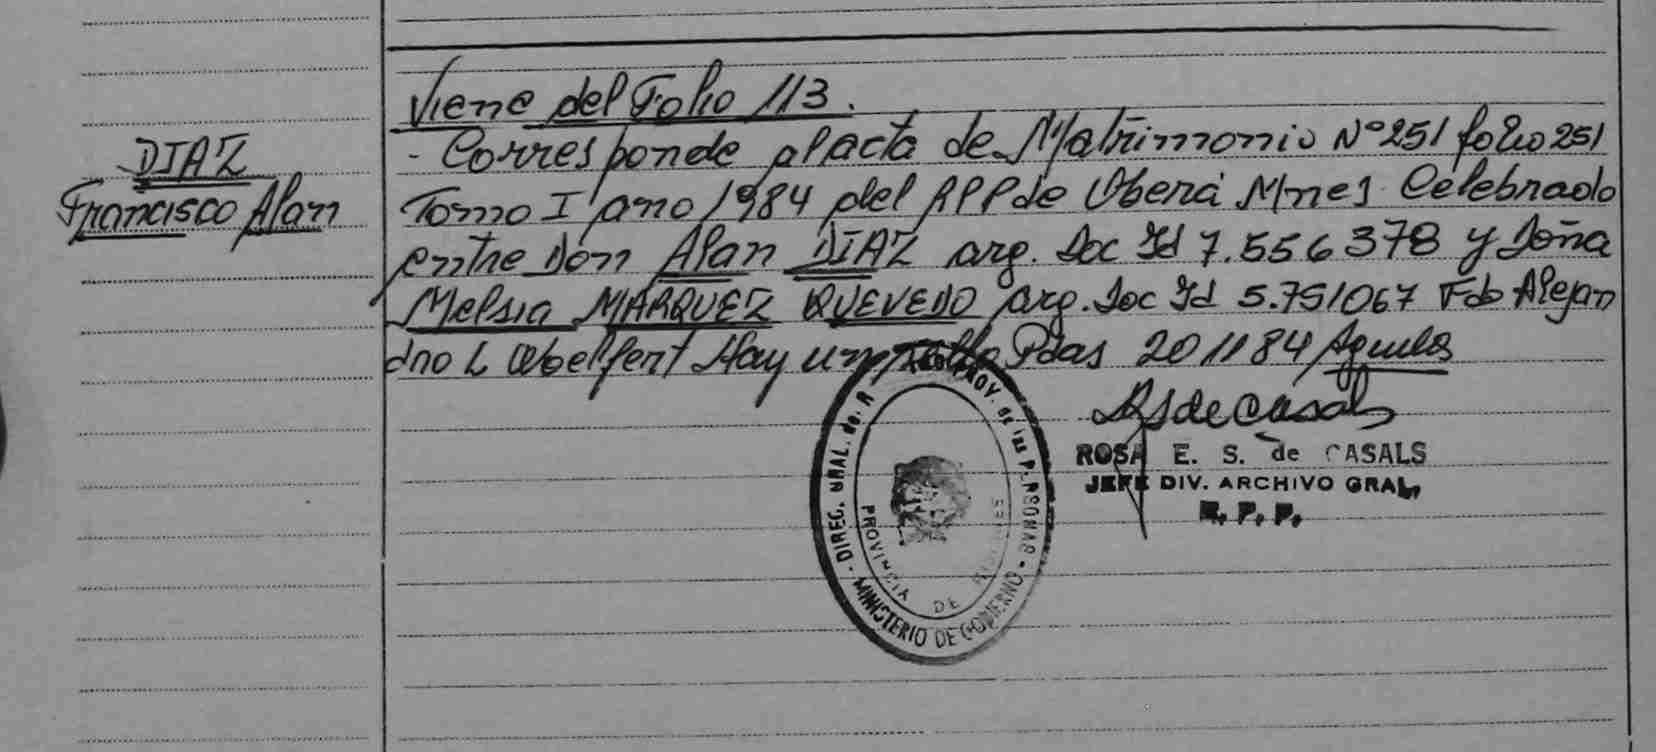 DIAZ
Francisco Alan
Viene del Folio 113.
- Corresponde al acta de Matrimonio Nº 251 folio 251
Tomo I año 1984 del RPP de Oberá Mnes. Celebrado
entre Don Alan DIAZ arg. Doc Id 7.556378 y Doña
Melsia MARQUEZ QUEVEDO arg. Doc Id 5.751067 Fdo Alejan
dro L Woelfert Hay un sello Pdas 20 11 84
RSdeCasals
ROSA E. S. de CASALS
JEFE DIV. ARCHIVO GRAL,
R. P. P.
DIREC. GRAL. de. R PROV. de las PERSONAS - MINISTERIO DE GOBIERNO -
PROVINCIA DE MISIONES